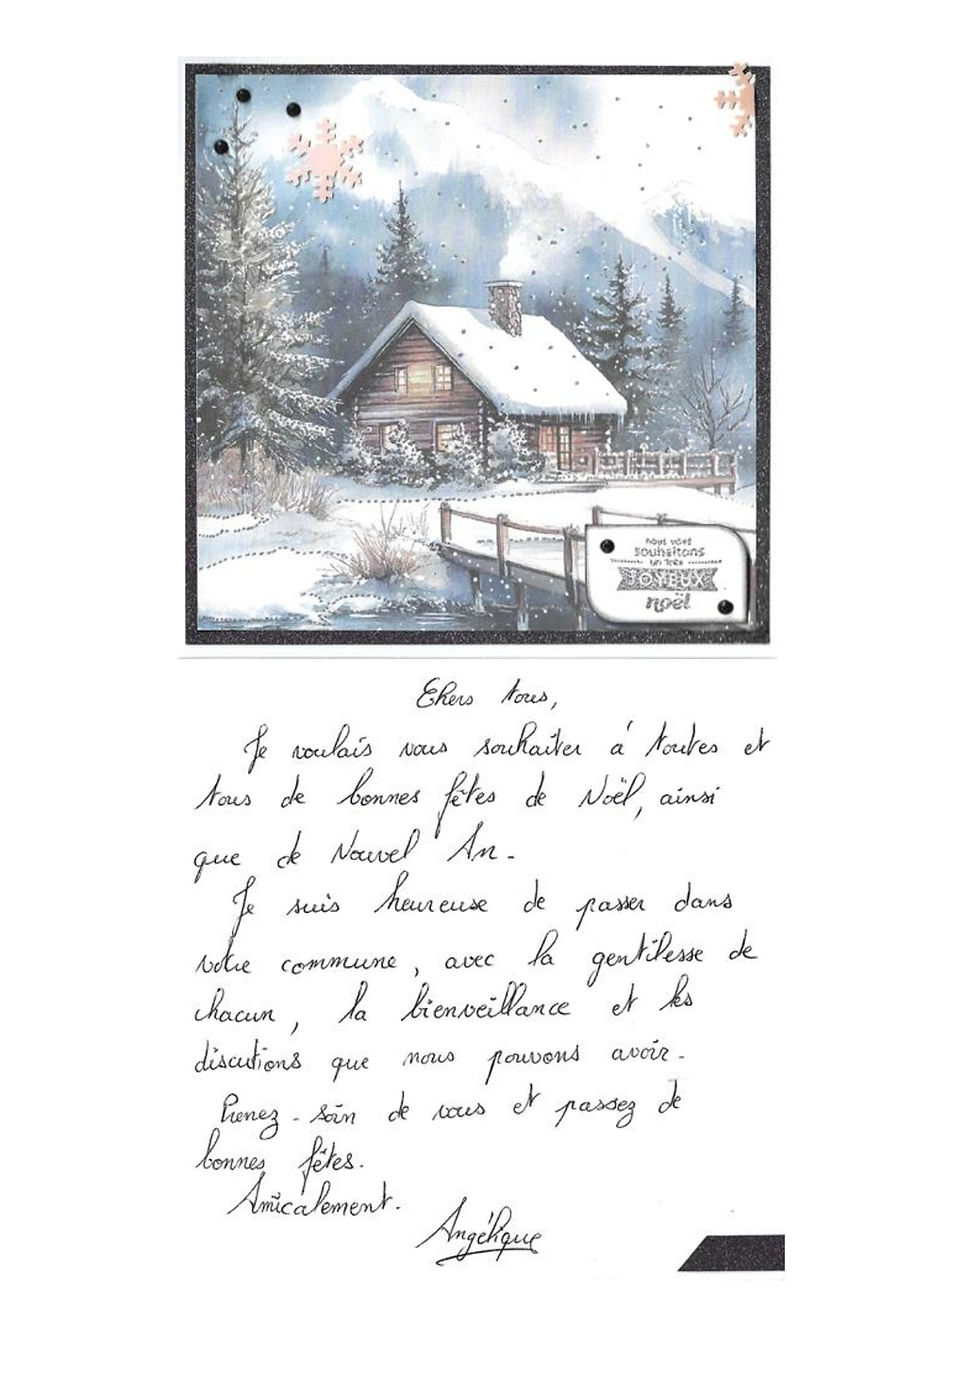 nous vous
souhaitons
un très
JOYEUX
noël
Chers tous,
Je voulais vous souhaiter à toutes et
tous de bonnes fêtes de Noël, ainsi
que de Nouvel An.
Je suis heureuse de passer dans
votre commune, avec la gentilesse de
chacun, la bienveillance et les
discutions que nous pouvons avoir.
Prenez-soin de vous et passez de
bonnes fêtes.
Amicalement.
Angélique